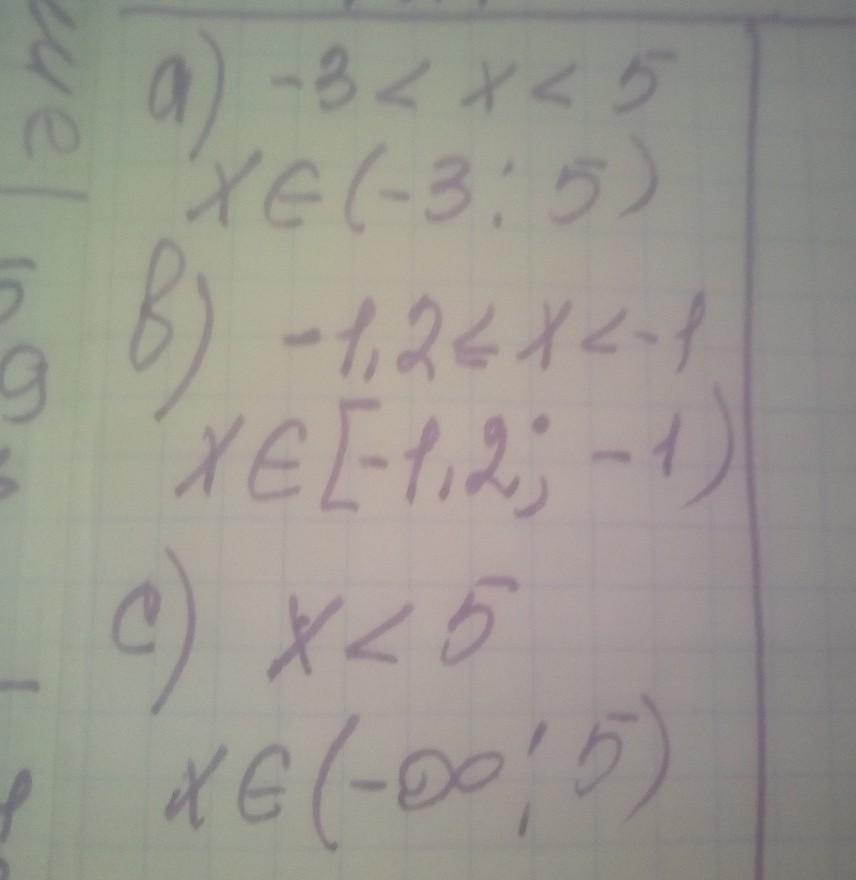 a) -3 < x < 5
x∈(-3; 5)
b) -1,2 ≤ x < -1
x∈[-1,2; -1)
c) x < 5
x∈(-∞; 5)